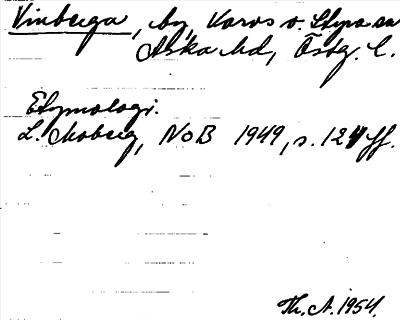 Vinberga, by, Varvs o. Styra sn
Aska hd, Östg. l.
Etymologi.
L. Moberg, NoB 1949, s. 124 ff.
Th. A. 1954.